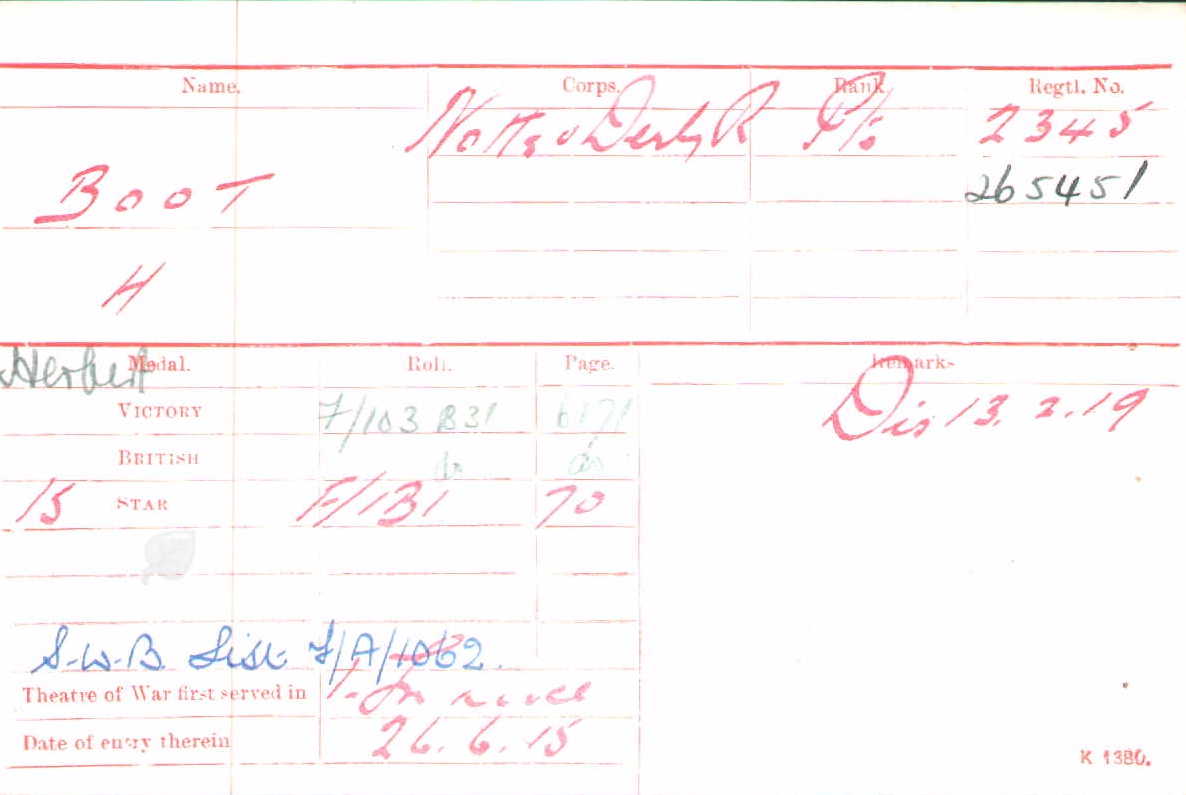 Name. Corps. Rank. Regtl. No.
Notts & Derby R Pte 2345
BOOT 265451
H
Herbert
Medal. Roll. Page. Remarks
VICTORY F/103 B31 6171 Dis 13.2.19
BRITISH do do
15 STAR F/1B1 70
S.W.B. List F/A/1062.
Theatre of War first served in 1- France
Date of entry therein 26.6.15
K 1380.